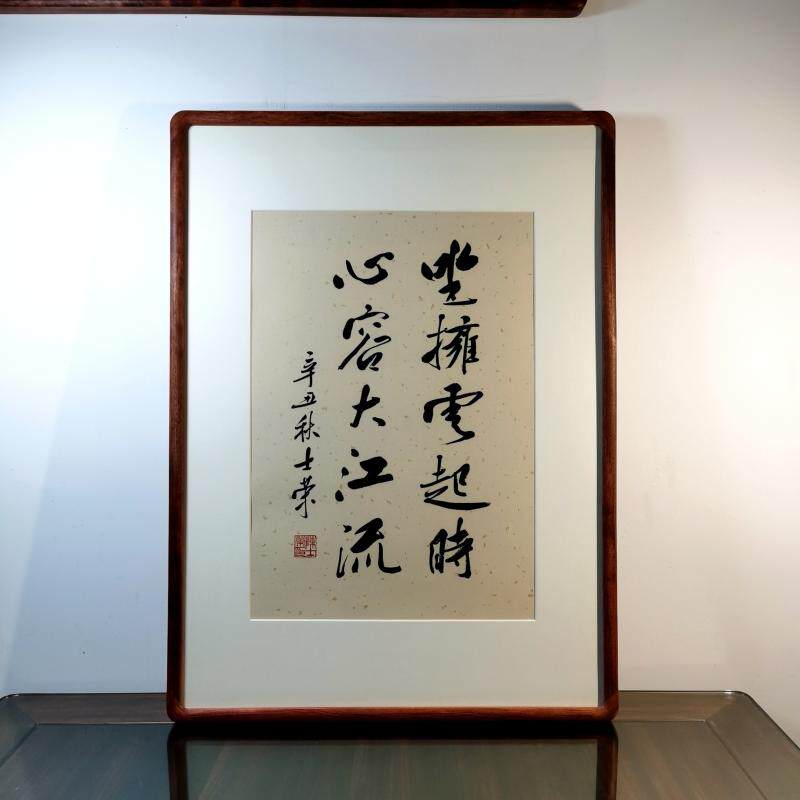 坐擁雲起時
心容大江流
辛丑秋士荣